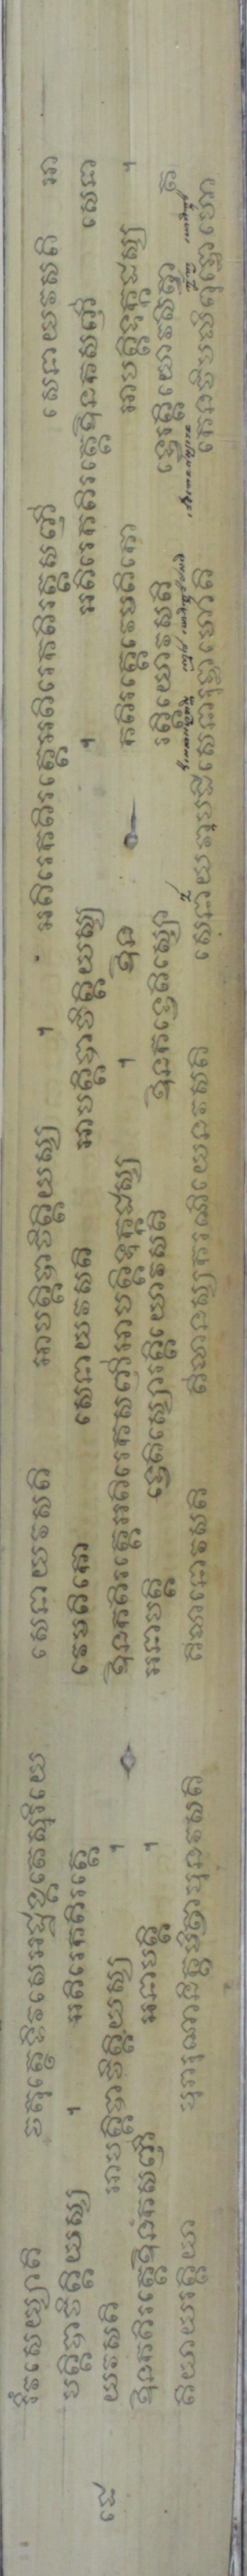 វំវសេយ្យាតិ ចតុត្ថេទិវសេអដ្ឋង្គតេសុរិយេ សេនាយវសតិ អាបត្តិបាចិត្តិយស្ស ។ អតិរេកតិរត្តេអតិរេកតិរត្តសញ្ញី សេនាយវសតិ អា
បត្តិបាចិត្តិយស្ស ។ អតិរេកតិរត្តេ វេមតិកោ សេនាយវសតិ អាបត្តិបាចិត្តិយស្ស ។ អតិរេកតិរត្តេឩនកសញ្ញី សេនា
យវសតិ អាបត្តិបាចិត្តិយស្ស ។ ឩនកតិរត្តេអតិរេកសញ្ញីអាបត្តិទុក្កដស្ស ។ ឩន កតិរត្តេវេមតិកោ អាបត្តិទុក្កដស្ស ។
ឩនកតិរត្តេឩនកសញ្ញី អនាបត្តិ ។ អនាបត្តិ ទ្វេតិស្សោរត្តិយោវសតិ ឩនកទ្វេតិស្សោ រត្តិយោវសតិ ទ្វេរត្តិយោវសិត្វា ត
តិយាយរត្តិយា បុរារុណានិក្ខមិត្វាបុនវសតិ គិលានោវសតិ គិលានស្សករណីយេនវសតិ សេនាយវាបដិសេនារុទ្ធាហោតិ កេនចិបលិពុទ្ធោហោ